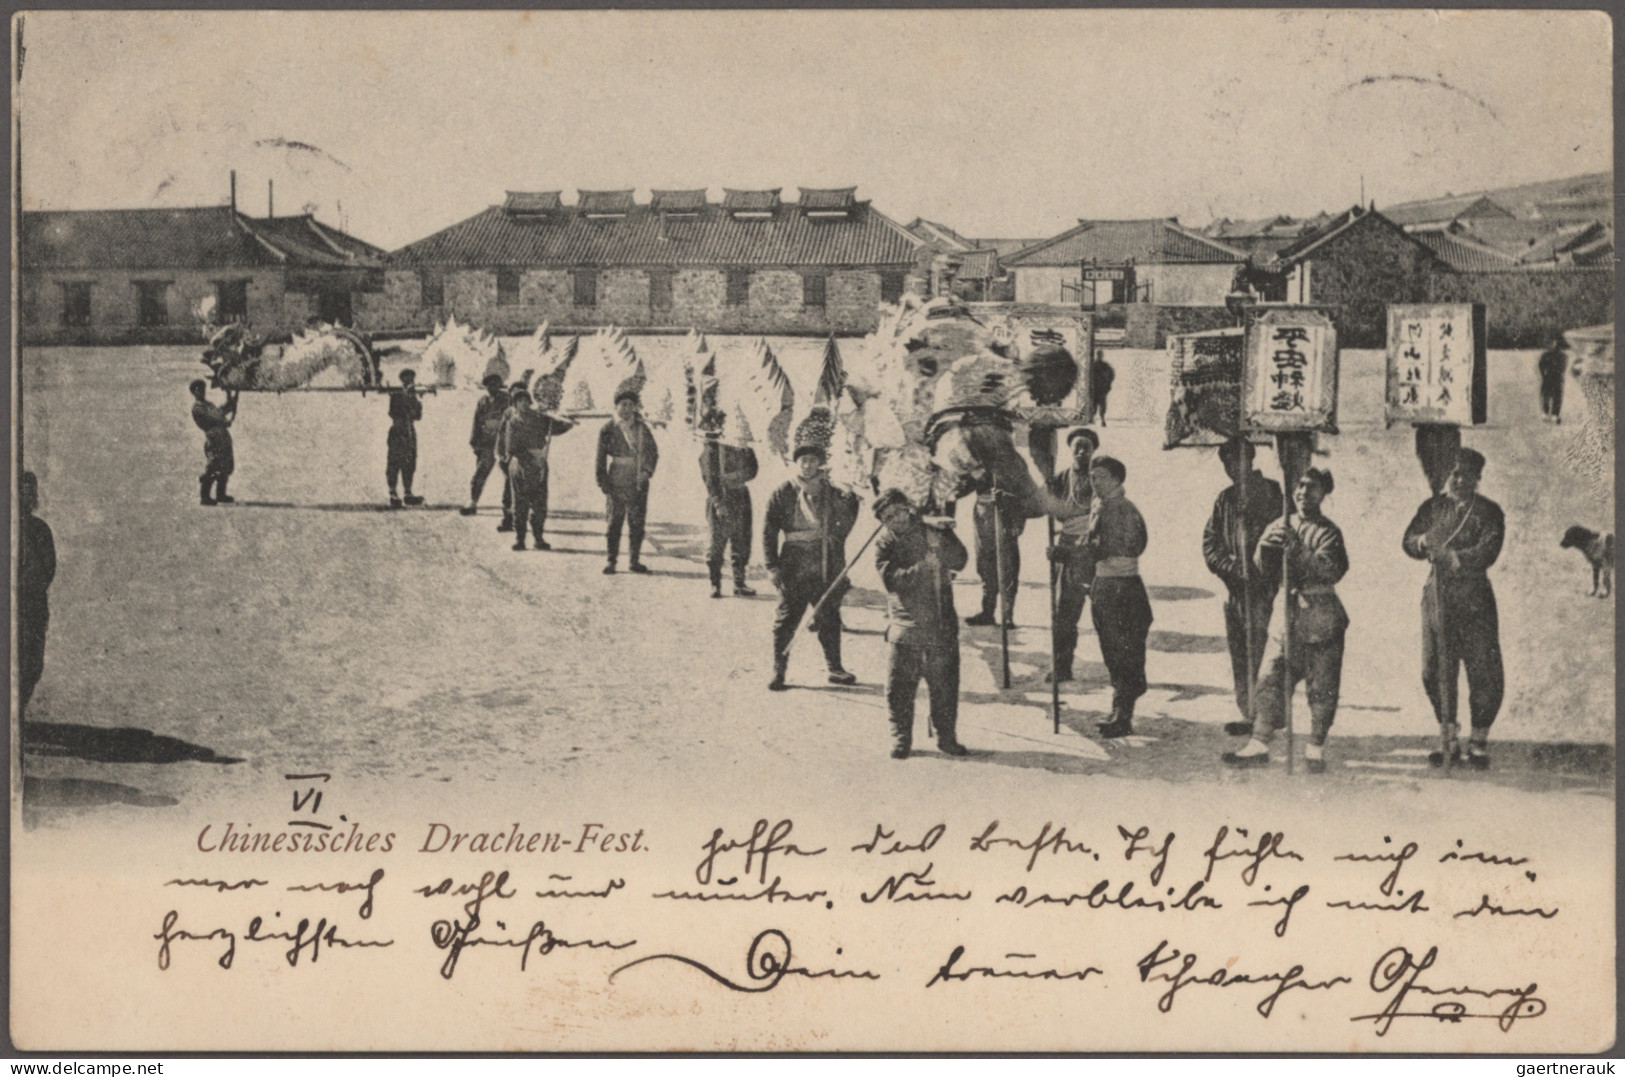 平安
VI
Chinesisches Drachen-Fest. hoffe das Beste. Ich fühle mich im-
mer noch wohl und munter. Nun verbleibe ich mit den
herzlichsten Grüßen Dein treuer Schwager Georg.
delcampe.net
gaertnerauk